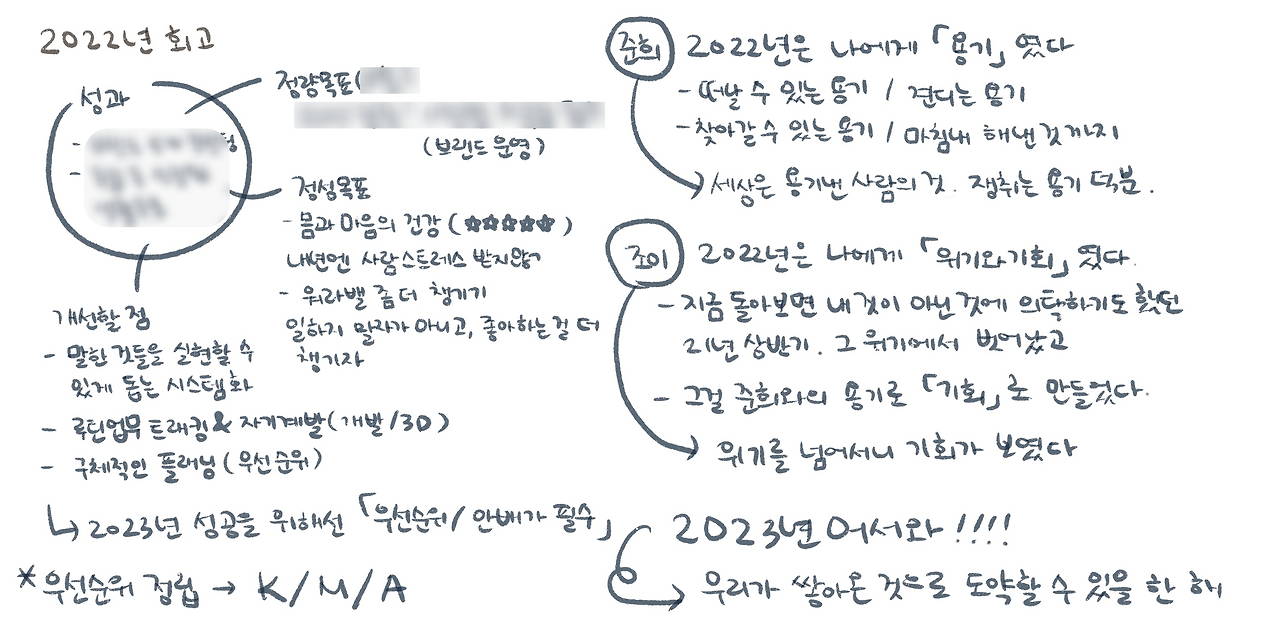 2022년 회고
성과
-
-
정량목표(
(브랜드 운영)
정성목표
- 몸과 마음의 건강 (☆☆☆☆☆)
내년엔 사람스트레스 받지않기
- 워라밸 좀 더 챙기기
일하지 말자가 아니고, 좋아하는걸 더
챙기자
개선할 점
- 말한 것들을 실현할 수
있게 돕는 시스템화
- 루틴업무 트래킹 & 자기계발 (개발/3D)
- 구체적인 플래닝 (우선순위)
↳ 2023년 성공을 위해선 「우선순위/ 안배가 필수」
* 우선순위 정립 → K/M/A
준희 2022년은 나에게 「용기」였다
- 떠날 수 있는 용기 / 견디는 용기
- 찾아갈 수 있는 용기 / 마침내 해낸것까지
→ 세상은 용기낸 사람의 것. 쟁취는 용기 덕분.
조이 2022년은 나에게 「위기와 기회」였다.
- 지금 돌아보면 내 것이 아닌 것에 의탁하기도 했던
21년 상반기. 그 위기에서 벗어났고
- 그걸 준희와의 용기로 「기회」로 만들었다.
→ 위기를 넘어서니 기회가 보였다
2023년 어서와 !!!!
→ 우리가 쌓아온 것으로 도약할 수 있을 한 해